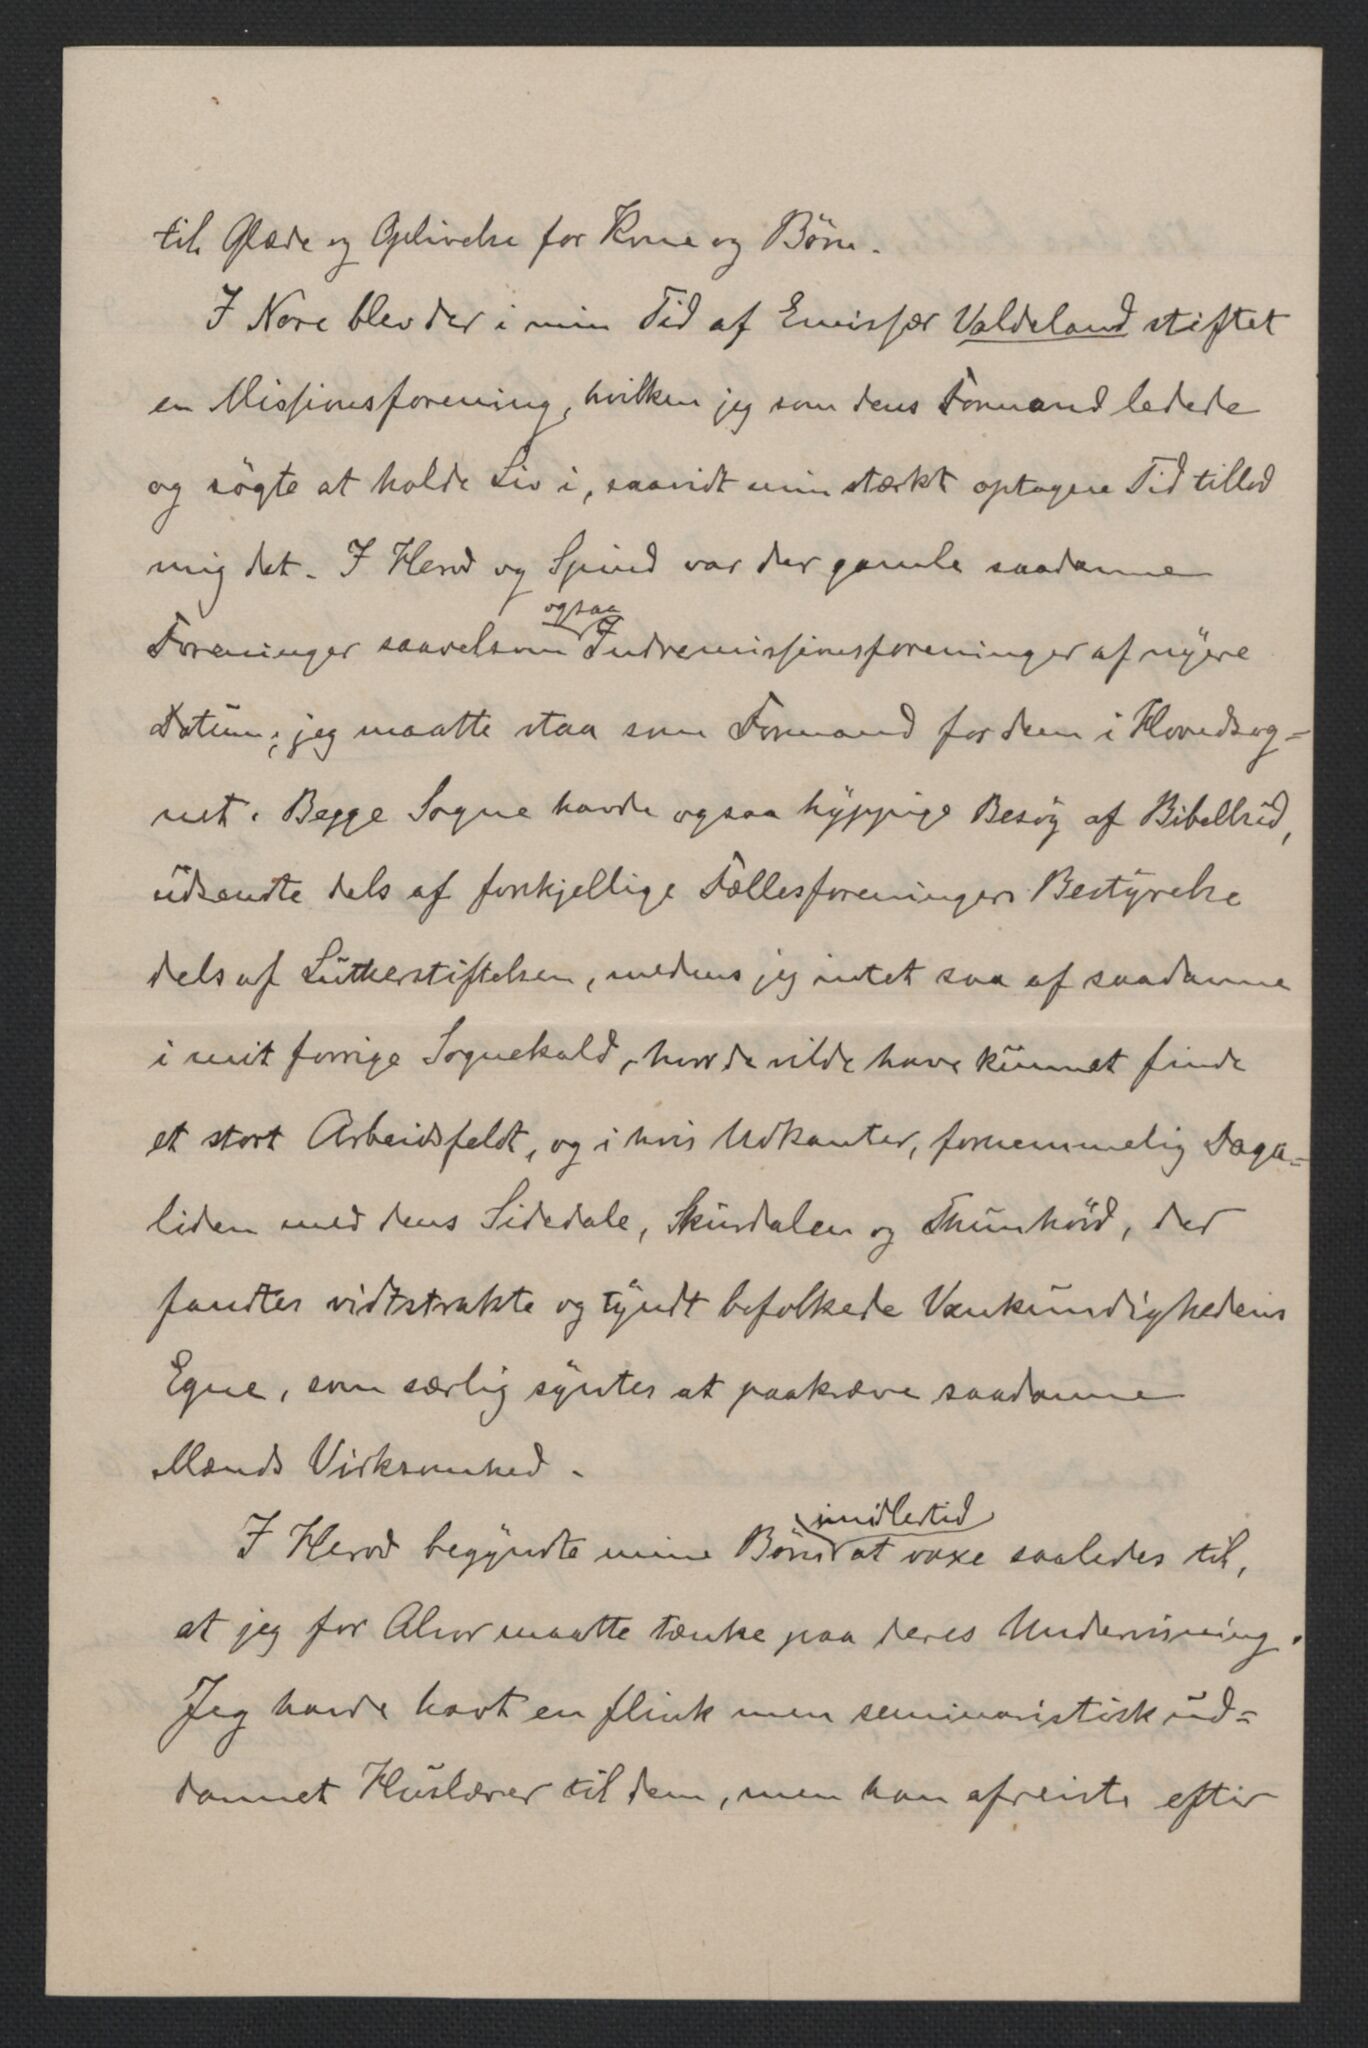 til Glæde og Oplivelse for Kone og Børn.
I Nore blev der i min Tid af Emissær Valdeland stiftet
en Missionsforening, hvilken jeg som dens Formand ledede
og søgte at holde Liv i, saavidt min stærkt optagne Tid tillod
mig det. I Herod og Spind var der gamle saadanne
Foreninger saavelsom ogsaa Indremissionsforeninger af nyere
Datum; jeg maatte staa som Formand for dem i Hovedsog=
net. Begge Sogne havde ogsaa hyppige Besøg af Bibelbud,
udsendte dels af forskjellige Fællesforeningers Bestyrelse
dels af Lutherstiftelsen, medens jeg intet saa af saadanne
i mit forrige Sognekald, hvor de vilde have kunnet finde
et stort Arbeidsfeldt, og i hvis Udkanter, fornemmelig Daga=
liden med dens Sidedale, Skurdalen og Thunhövd, der
fandtes vidtstrakte og tyndt befolkede Vankundighedens
Egne, som særlig syntes at paakræve saadanne
Mænds Virksomhed.
I Herod begyndte mine Børn imidlertid at vaxe saaledes til,
at jeg for Alvor maatte tænke paa deres Undervisning.
Jeg havde havt en flink men seminaristisk ud=
dannet Huslærer til dem, men han afreiste efter